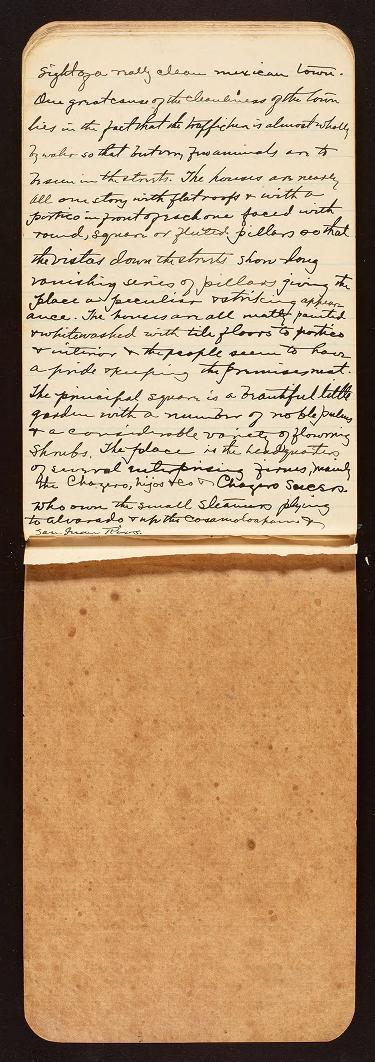 sight of a really clean mexican town.
One great cause of the cleanliness of the town
lies in the fact that the traffic here is almost wholly
by water so that but very few animals are to
be seen in the streets. The houses are nearly
all one story with flat roofs & with a
portico in front of each one faced with
round, square or fluted pillars so that
the vistas down the streets show long
vanishing series of pillars giving the
place a peculiar & striking appear
ance. The houses are all neatly painted
& whitewashed with tile floors to portico
& interior & the people seem to have
a pride in keeping the premises neat.
The principal square is a beautiful little
garden with a number of noble palms
& a considerable variety of flowering
shrubs. The place is the headquarters
of several enterprising firms, mainly
the Chazaro, hijos & co & Chazaro Sucers
who own the small steamers plying
to Alvarado & up the Cosamaloapam &
San Juan Rivers.